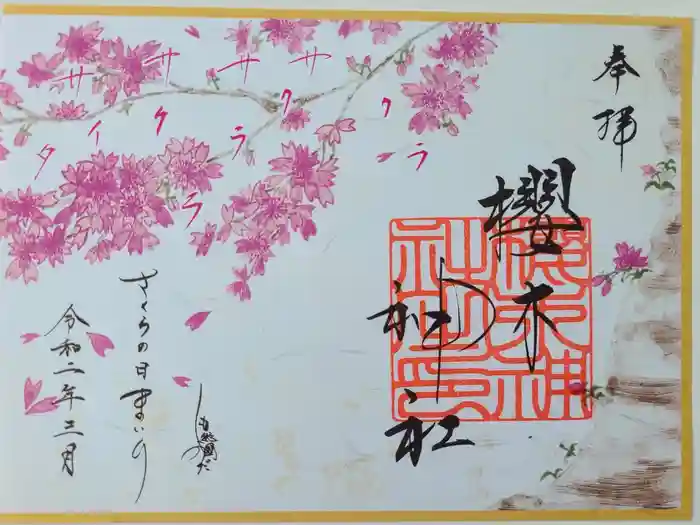 奉拝
櫻木
神社
櫻木神
社之印
サクラ
サクラ
サクラ
サイタ
さくらの日まいり
令和二年三月